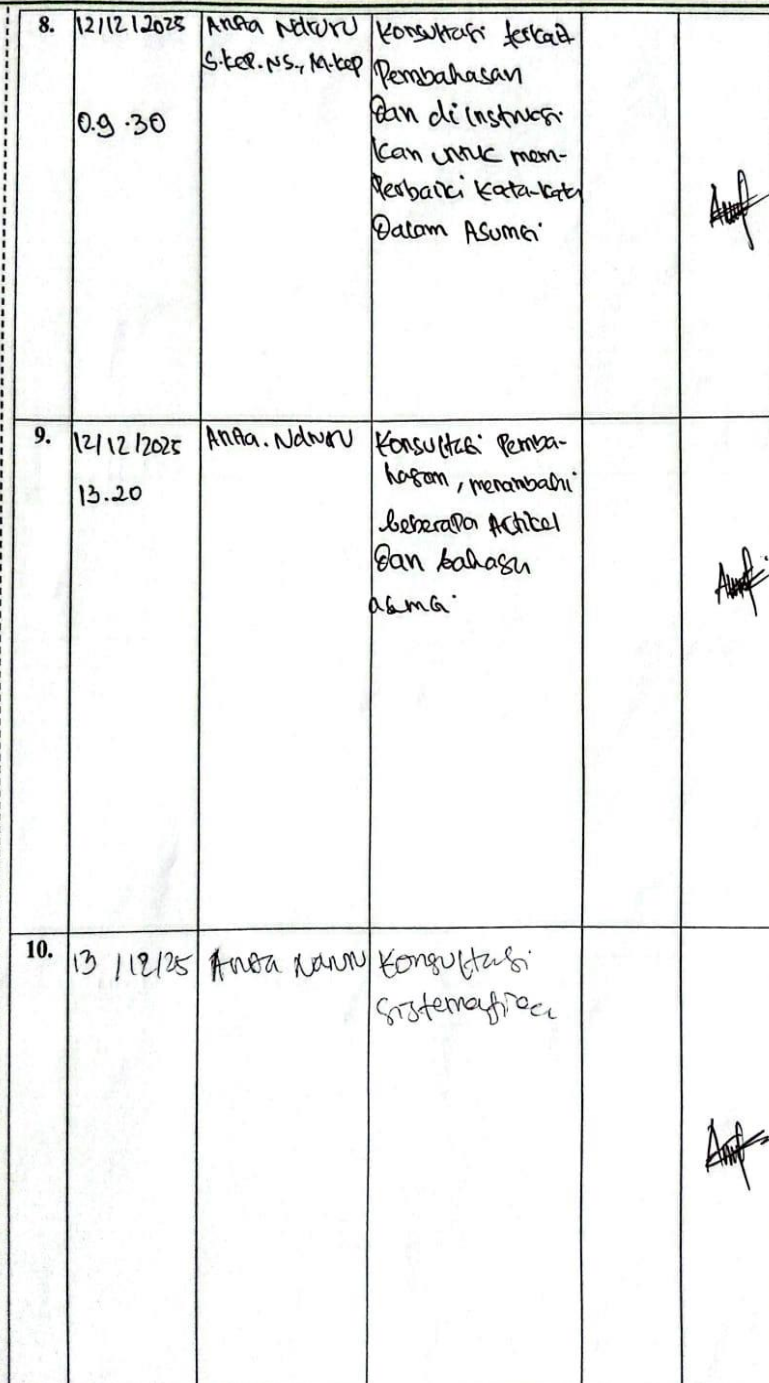 8.
12/12/2025
0.9.30
Ndruru
S.kep.NS., M.kep
Konsultasi terkait
Pembahasan
Dan di instruksi
kan untuk mem-
Perbaiki kata-kata
Dalam Asumsi
9.
12/12/2025
13.20
Ndruru
Konsultasi Pemba-
hasan, menambahi
beberapa Artikel
Dan bahasa
asumsi
10.
13/12/25
Konsultasi